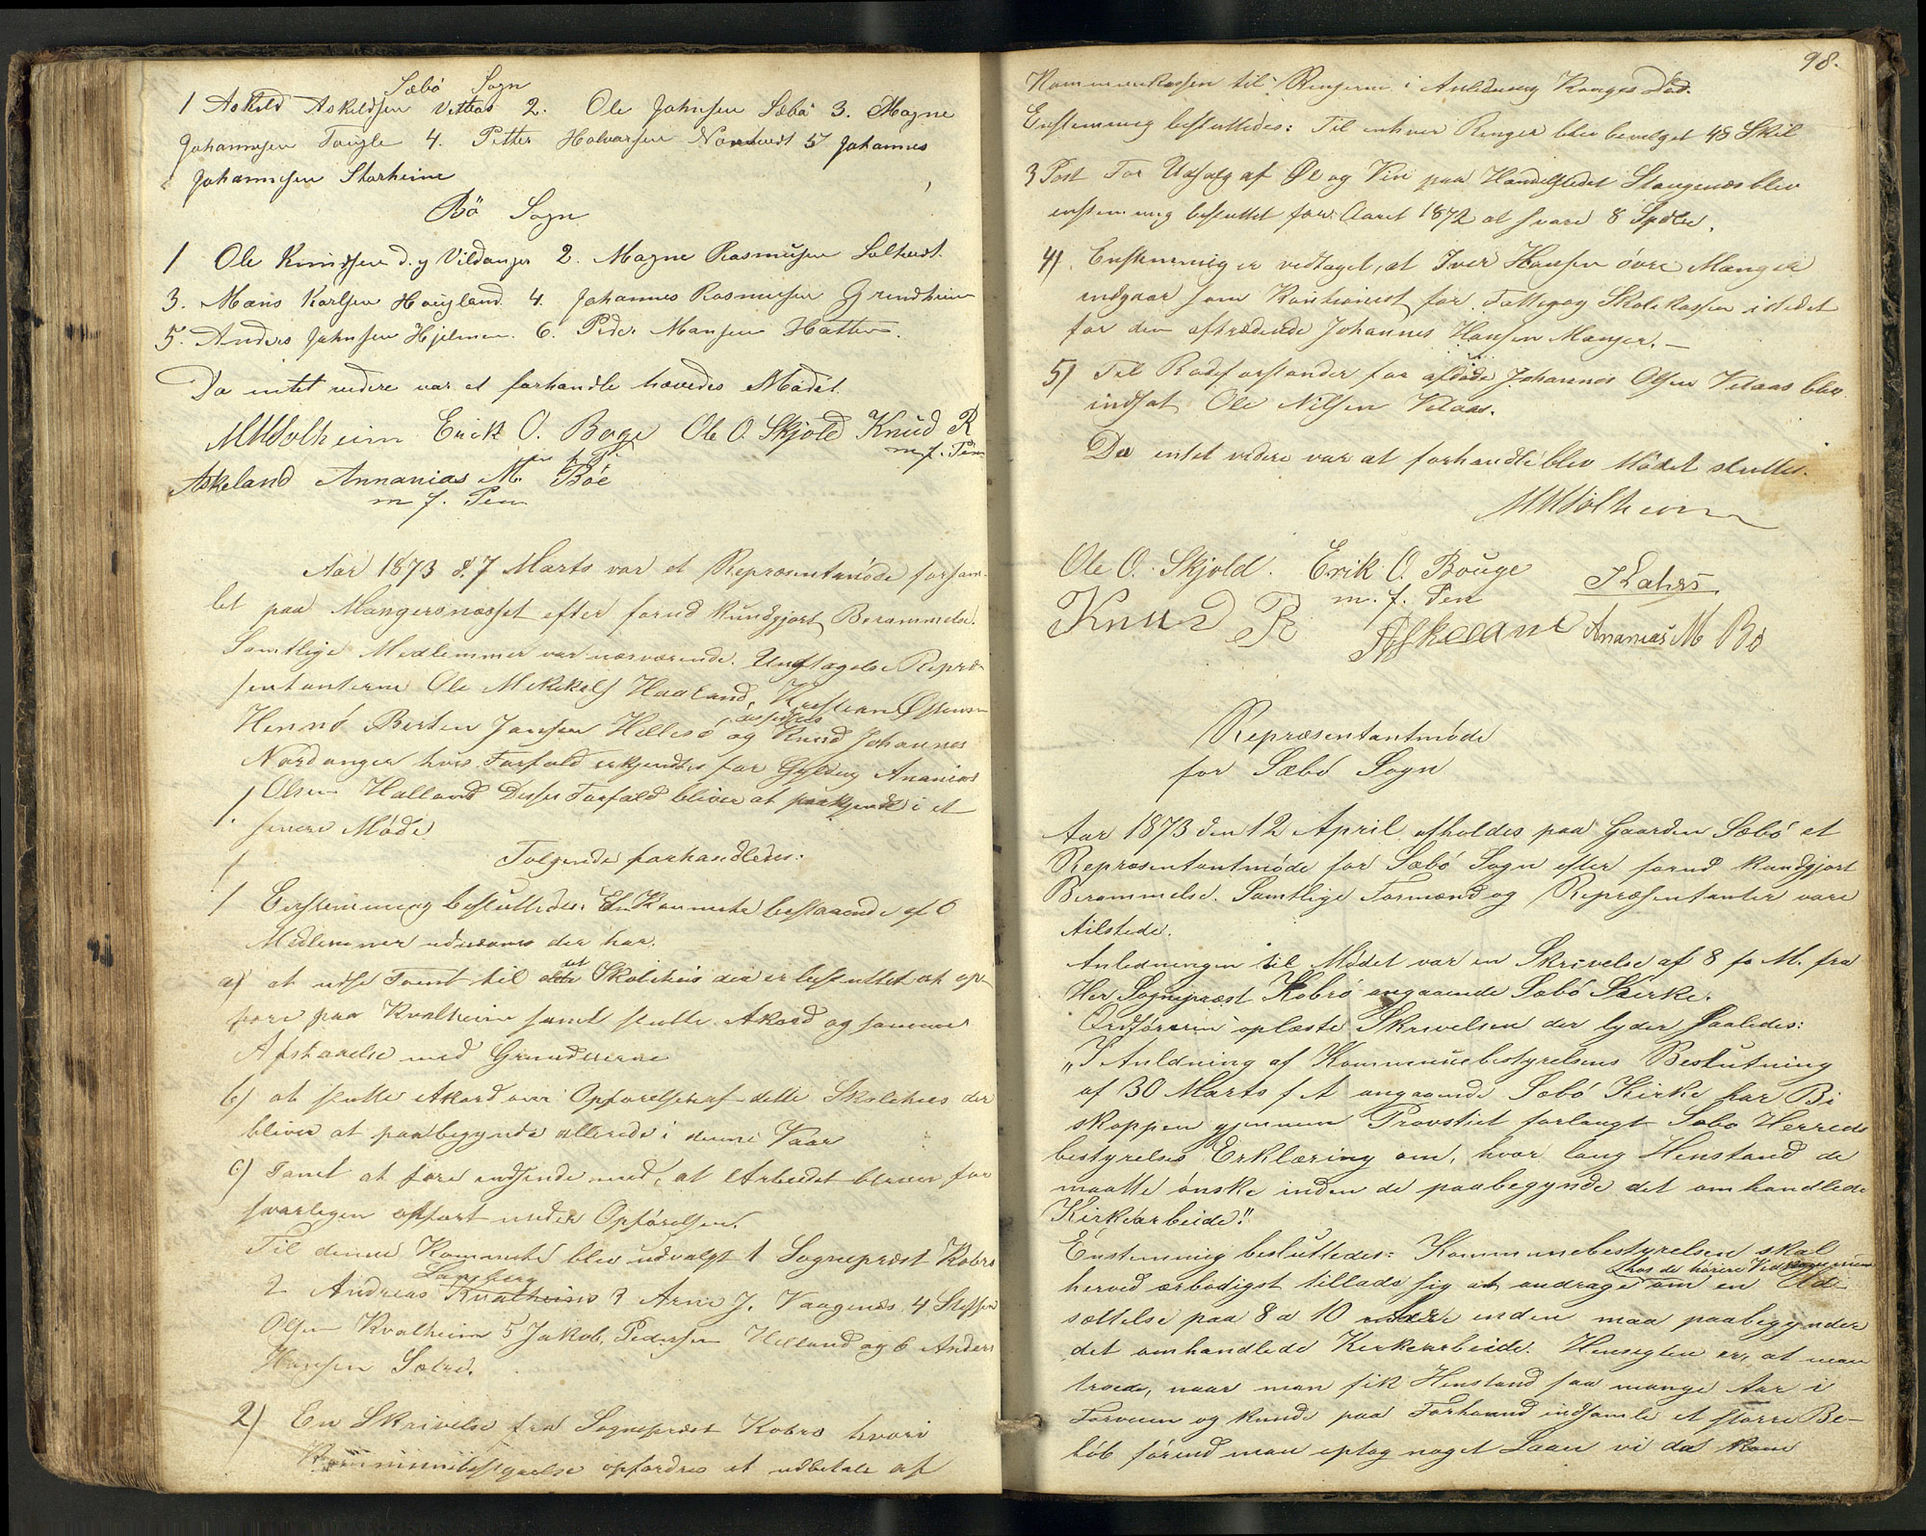 Sæbö Sogn
1 Askild Askildsen Vettaas 2. Ole Johnsen Sæbö 3. Magne
Johannesen Tougle 4. Petter Halvorsen Nordtvedt 5 Johannes
Johannesen Storheim
Bö Sogn
1 Ole Knudsen d. y Vildanger 2. Magne Rasmusen Soltvedt.
3. Mons Karlsen Hougland. 4. Johannes Rasmusen Grindheim
5. Anders Johnsen Hjelmen. 6. Peder Monsen Hatten.
Da intet videre var at forhandle hævedes Mödet.
MMolheim Erik O. Boge Ole O. Skjold Knud R
m. f. Pen
Askeland Annanias M. Böe
m f. Pen
Aar 1873 d. 7 Marts var et Repræsentmöde forsam-
let paa Mangersnæsset efter forud kundgjort Berammelse.
Samtlige Medlemmer var nærværende. Undtagelse Repræ-
sentanterne Ole Mikkels Haaland, Kristian Östensen
Hennö Berten Jansen Hellesö og Knud Johannes
Nordanger hvis Forfald erkjendtes for Gyldig Ananias
Olsen Halland Disses Forfald bliver at paakjende i et
senere Möde
Fölgende forhandledes:
1 Eenstemmig besluttedes: En Kommite bestaaende af 6
Medlemmer udnævnes der har.
a) at udse Tomt til det Skolehus der er besluttet at op-
före paa Kvalheim samt slutte Akord og sammes
Afstaaelse med Grundeierne
b) at slutte Akord over Opförelsen af dette Skolehus der
bliver at paabegynde allerede i denne Vaar
c) Samt at före indseende med, at Arbeidet bliver for
svarligen opfört under Opförelsen.
Til denne Kommite blev udvalgt 1 Sognepræst Kobro
Landberg
2 Andreas Kvalheim 3 Arne J. Vaagenæs, 4 Steffen
Olsen Kvalheim 5 Jakob Pedersen Helland og 6 Anders
Hansen Sætre.
2) En Skrivelse fra Sognepræst Kobro hvori
Kommunebestyrelse opfordres at udbetale af
98.
Kommunekassen til Ringerne i Anledning Konges Död.
Enstemmig besluttedes: Til enhver Ringer blev bevilget 48 Skil
3 Post For Udsalg af Øl og Vin paa Handelstedet Stangenæs blev
enstemmig besluttet for Aaret 1872 at svare 8 Spdlr.
4) Enstemmig er vedtaget, at Iver Hansen övre Manger
indgaar som Kautionist for Fattig og Skolekassen istedet
for den aftrædende Johannes Hansen Manger.—
5) Til Rodeforstander for afdöde Johannes Olsen Vetaas blev
indsat Ole Nilsen Vetaas.
Da intet videre var at forhandle blev Mödet sluttet.
MMolheim
Ole O. Skjold. Erik O. Bouge Kahrs
m. f. Pen
Knud R Askeland Ananias M Bö
Repræsentantmöde
for Sæbö Sogn
Aar 1873 den 12 April afholdes paa Gaarden Sæbö et
Repræsentantmöde for Sæbö Sogn efter forud kundgjort
Berammelse. Samtlige Formænd og Repræsentanter vare
tilstede.
Anledningen til Mödet var en Skrivelse af 8 f. M. fra
Her Sognepræst Kobro angaaende Sæbö Kirke.
Ordföreren oplæste Skrivelsen der lyder saaledes:
„I Anledning af Kommunebestyrelsens Beslutning
af 30 Marts f A angaaende Sæbö Kirke har Bi
skoppen gjennem Provstiet forlangt Sæbö Herreds
bestyrelses Erklæring om, hvor lang Henstand de
maatte önske inden de paabegynde det omhandlede
Kirkearbeide."
Enstemmig besluttedes: Kommunebestyrelsen skal
hos de höiere Vedkommende
herved ærbödigst tillade sig at andrage om en Ud-
sættelse paa 8 a 10 Aar inden man paabegynder
det omhandlede Kirkearbeide. Hensigten er, at man
troede, naar man fik Henstand saa mange Aar i
Forveien og kunde paa Forhaand indsamle et större Be-
löb förend man optog noget Laan vi da kom